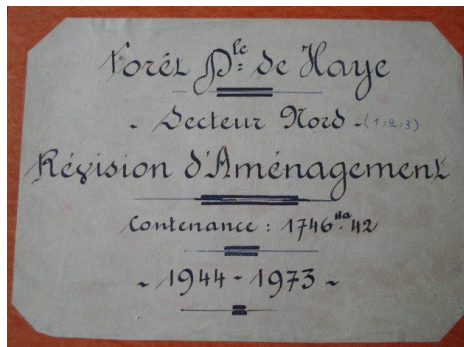 Forêt Dle de Haye
- Secteur Nord - (1,2,3)
Révision d'Aménagement
Contenance : 1746ha.42
~ 1944 - 1973 ~